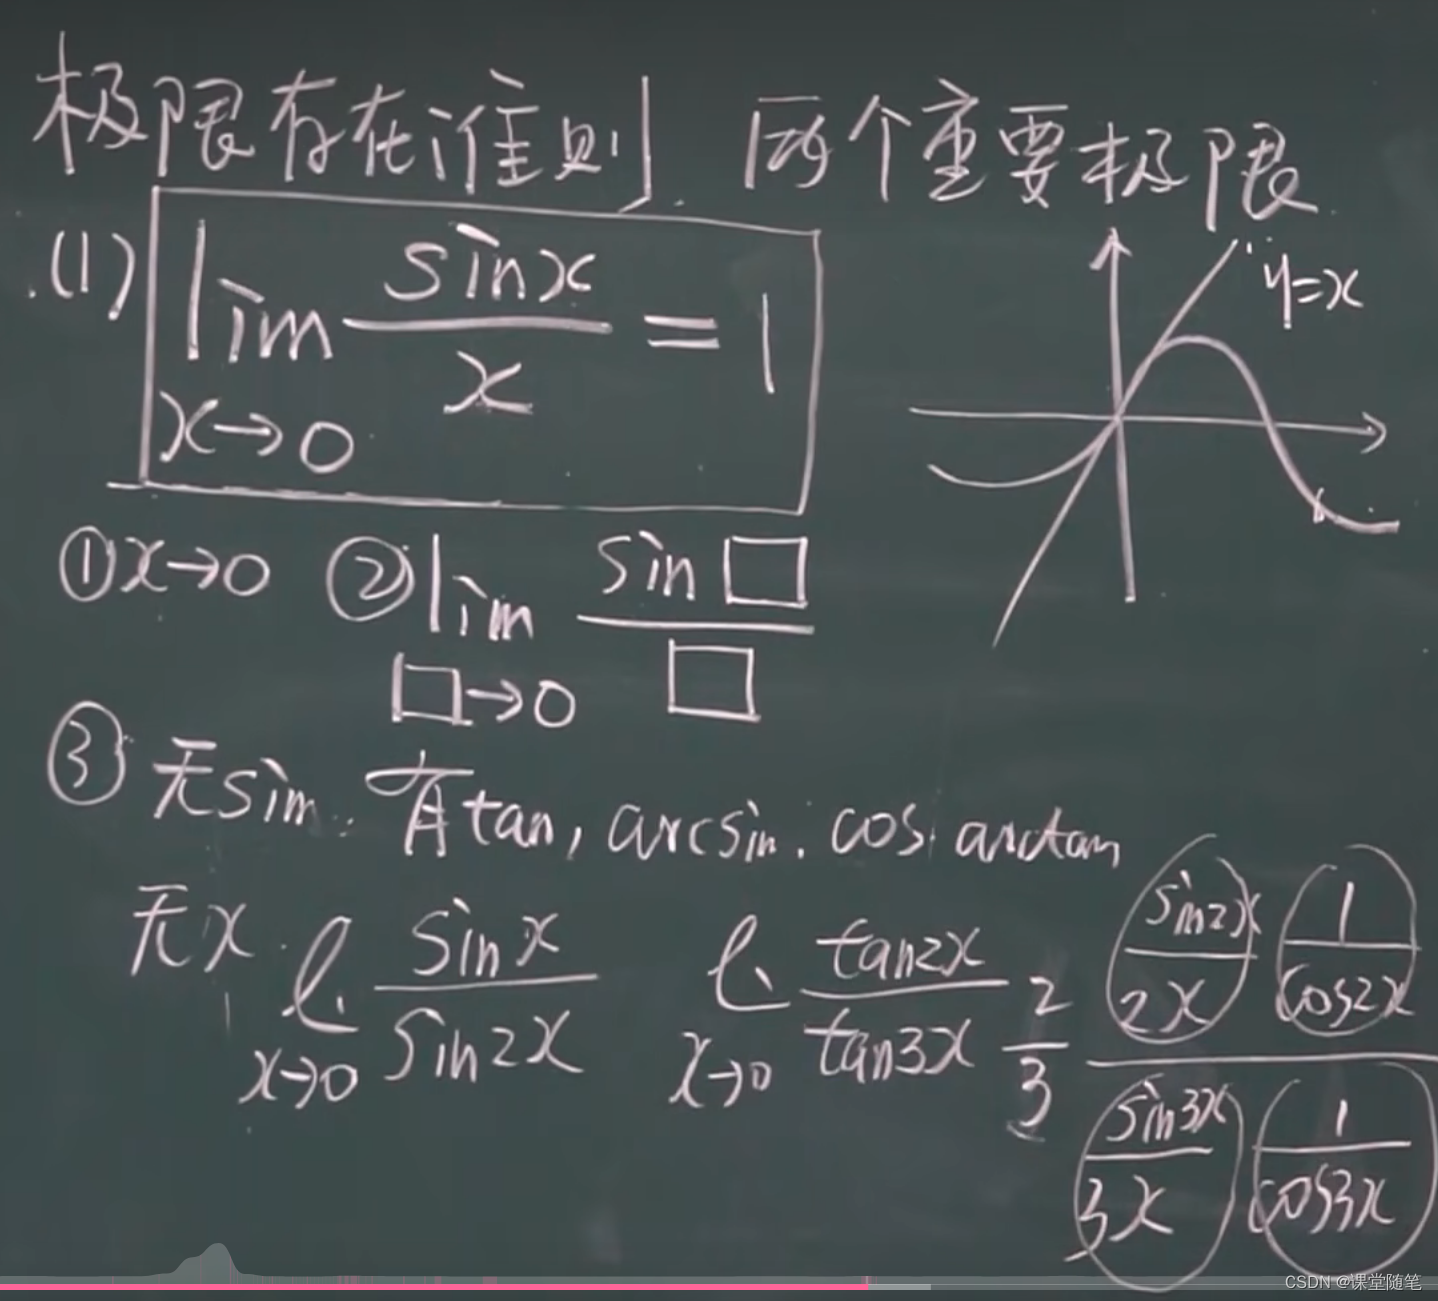 极限存在准则. 两个重要极限.
(1) lim x→0 sinx/x = 1
y=x
① x→0 ② lim □→0 sin□/□
③ 无sin. 有tan, arcsin. cos arctan
无x. l. x→0 sinx/sin2x l. x→0 tan2x/tan3x 2/3 (sin2x/2x 1/cos2x)/(sin3x/3x 1/cos3x)
CSDN @课堂随笔